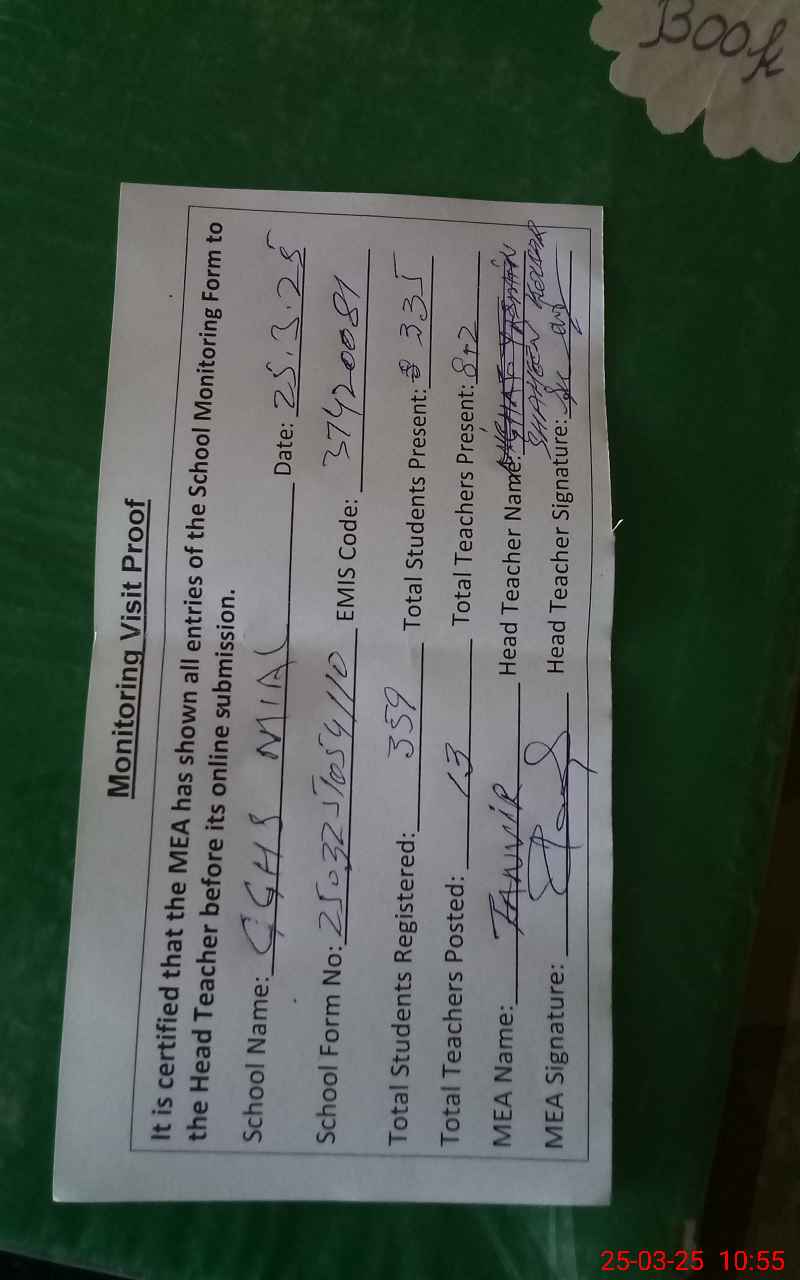 Book
Monitoring Visit Proof
It is certified that the MEA has shown all entries of the School Monitoring Form to
the Head Teacher before its online submission.
School Name: GGHS MIAL Date: 25.3.25
School Form No: EMIS Code: 37420081
Total Students Registered: 359 Total Students Present: 335
Total Teachers Posted: 13 Total Teachers Present: 8+2
MEA Name: TANVIR Head Teacher Name: SHAHEEN KOUSAR
MEA Signature: Head Teacher Signature:
25-03-25 10:55